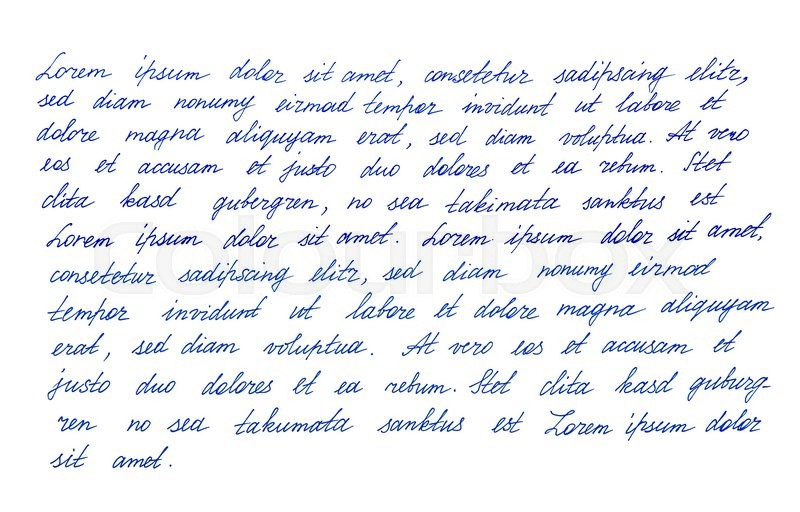 Lorem ipsum dolor sit amet, consetetur sadipscing elitr,
sed diam nonumy eirmod tempor invidunt ut labore et
dolore magna aliquyam erat, sed diam voluptua. At vero
eos et accusam et justo duo dolores et ea rebum. Stet
clita kasd gubergren, no sea takimata sanktus est
Lorem ipsum dolor sit amet. Lorem ipsum dolor sit amet,
consetetur sadipscing elitr, sed diam nonumy eirmod
tempor invidunt ut labore et dolore magna aliquyam
erat, sed diam voluptua. At vero eos et accusam et
justo duo dolores et ea rebum. Stet clita kasd guburg-
ren no sea takumata sanktus est Lorem ipsum dolor
sit amet.
colourbox